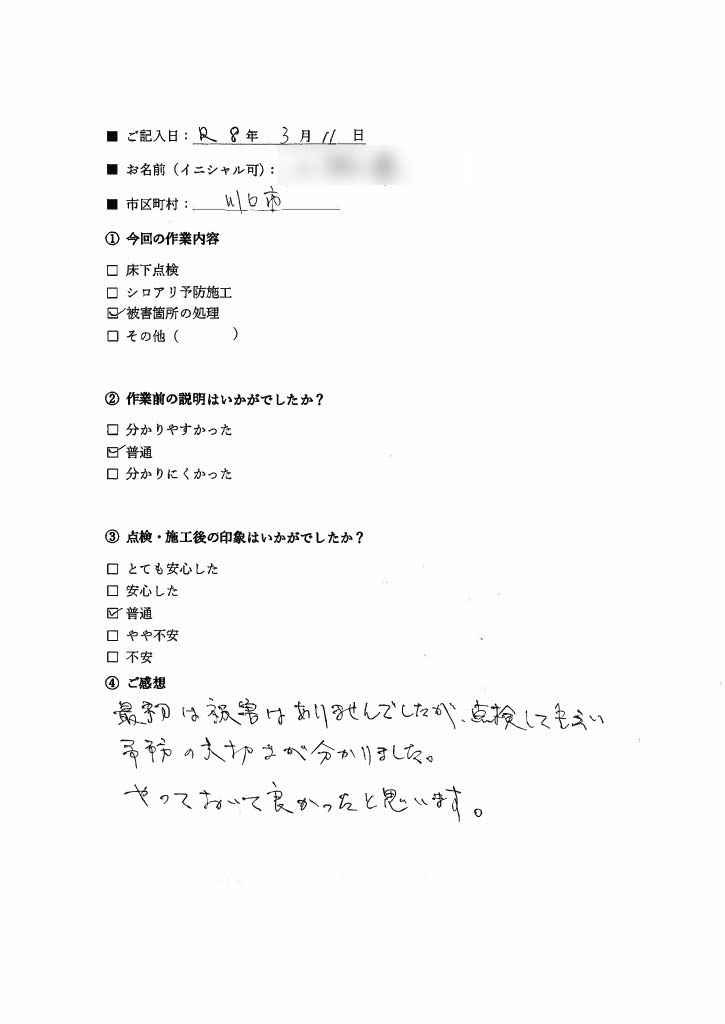 ■ ご記入日：R 8年 3月 11日
■ お名前（イニシャル可）：
■ 市区町村： 川口市
① 今回の作業内容
□ 床下点検
□ シロアリ予防施工
☑ 被害箇所の処理
□ その他（　　　　）
② 作業前の説明はいかがでしたか？
□ 分かりやすかった
☑ 普通
□ 分かりにくかった
③ 点検・施工後の印象はいかがでしたか？
□ とても安心した
□ 安心した
☑ 普通
□ やや不安
□ 不安
④ ご感想
最初は被害はありませんでしたが、点検してもらい
予防の大切さが分かりました。
やっておいて良かったと思います。